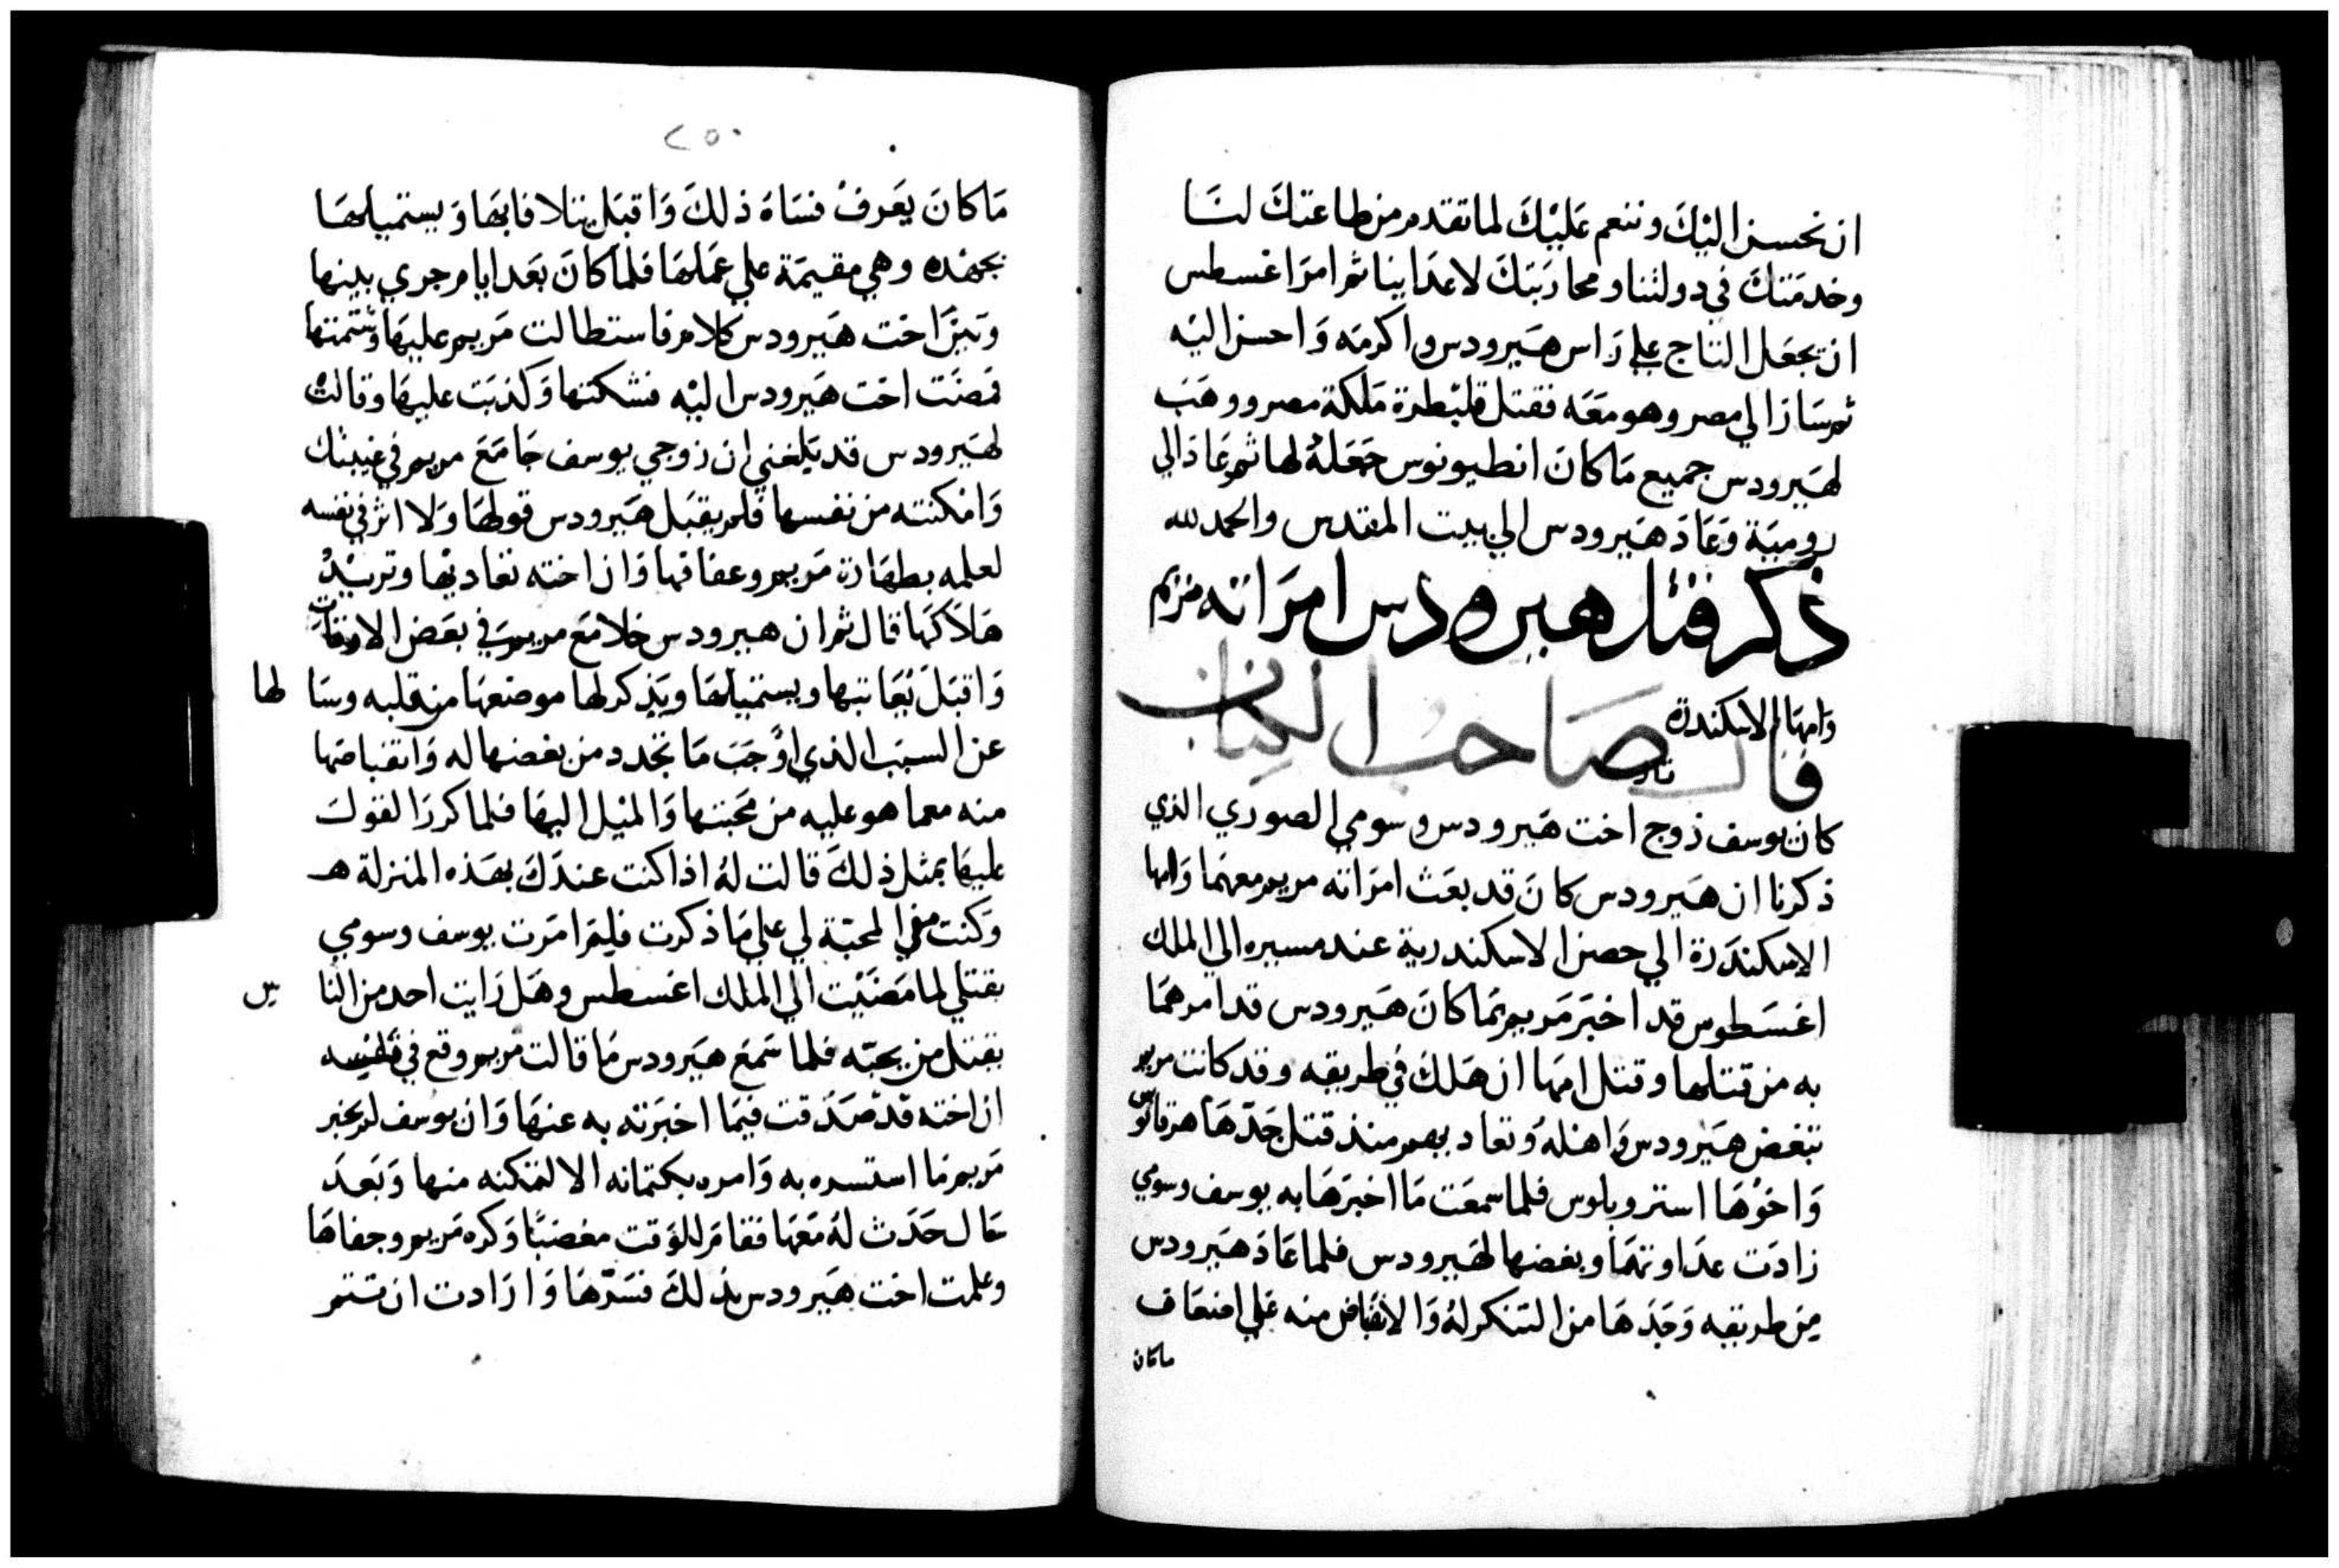 ان نحسن اليك وننعم عليك لما تقدم من طاعتك لنا
وخدمتك في دولتنا ومحاربتك لاعداينا ثم امر اغسطس
ان يجعل التاج علي راس هيرودس واكرمه واحسن اليه
ثم سار الي مصر وهو معه فقتل قلبطرة ملكة مصر ووهب
لهيرودس جميع ما كان انطيونوس جعله لها ثم عاد الي
رومية وعاد هيرودس الي بيت المقدس والحمد لله
ذكر قتل هيرودس امراته مريم
وامها الاسكندرة
قال صاحب الكتاب
كان يوسف زوج اخت هيرودس وسومي الصوري الذي
ذكرنا ان هيرودس كان قد بعث امراته مريم معهما وامها
الاسكندرة الي حصن الاسكندرية عند مسيره الي الملك
اغسطوس قد اخبر مريم بما كان هيرودس قد امرهما
به من قتلها وقتل امها ان هلك في طريقه وقد كانت مريم
تبغض هيرودس واهله وتعاديهم منذ قتل جدها هرقانوس
واخوها استروبلوس فلما سمعت ما اخبرها به يوسف وسومي
زادت عداوتها وبغضها لهيرودس فلما عاد هيرودس
من طريقه وجدها من التنكر له والانقباض منه علي اضعاف
ماكان
٢٥٠
ما كان يعرف فساه ذلك واقبل يتلافابها ويستميلها
بجهده وهي مقيمة علي عملها فلما كان بعد ايام جري بينها
وبين اخت هيرودس كلام فاستطالت مريم عليها وشتمتها
فمضت اخت هيرودس اليه فشكتها وكذبت عليها وقالت
لهيرودس قد بلغني ان زوجي يوسف جامع مريم في غيبتك
وامكنته من نفسها فلم يقبل هيرودس قولها ولا اثر في نفسه
لعلمه بطهارة مريم وعفافها وان اخته تعاديها وتريد
هلاكها قال ثم ان هيرودس خلا مع مريم في بعض الاوقات
واقبل يعاتبها ويستميلها ويذكر لها موضعها من قلبه وسا لها
عن السبب الذي اوجب ما تجدد من بغضها له وانقباضها
منه مما هو عليه من محبتها والميل اليها فلما كرر القول
عليها بمثل ذلك قالت له اذا كنت عندك بهذه المنزلة هـ
وكنت من المحبة لي علي ما ذكرت فلم امرت يوسف وسومي
بقتلي لما مضيت الي الملك اغسطس وهل رايت احد من النا س
يقتل من يحبه فلما سمع هيرودس ما قالت مريم وقع في نفسه
ان اخته قد صدقت فيما اخبرته به عنها وان يوسف لم يخبر
مريم ما استسره به وامره بكتمانه الا لتمكنه منها وبعد
حال حدث له معها فقام للوقت مغضبا وكره مريم وجفاها
وعلمت اخت هيرودس بذلك فسرها وارادت ان تتم